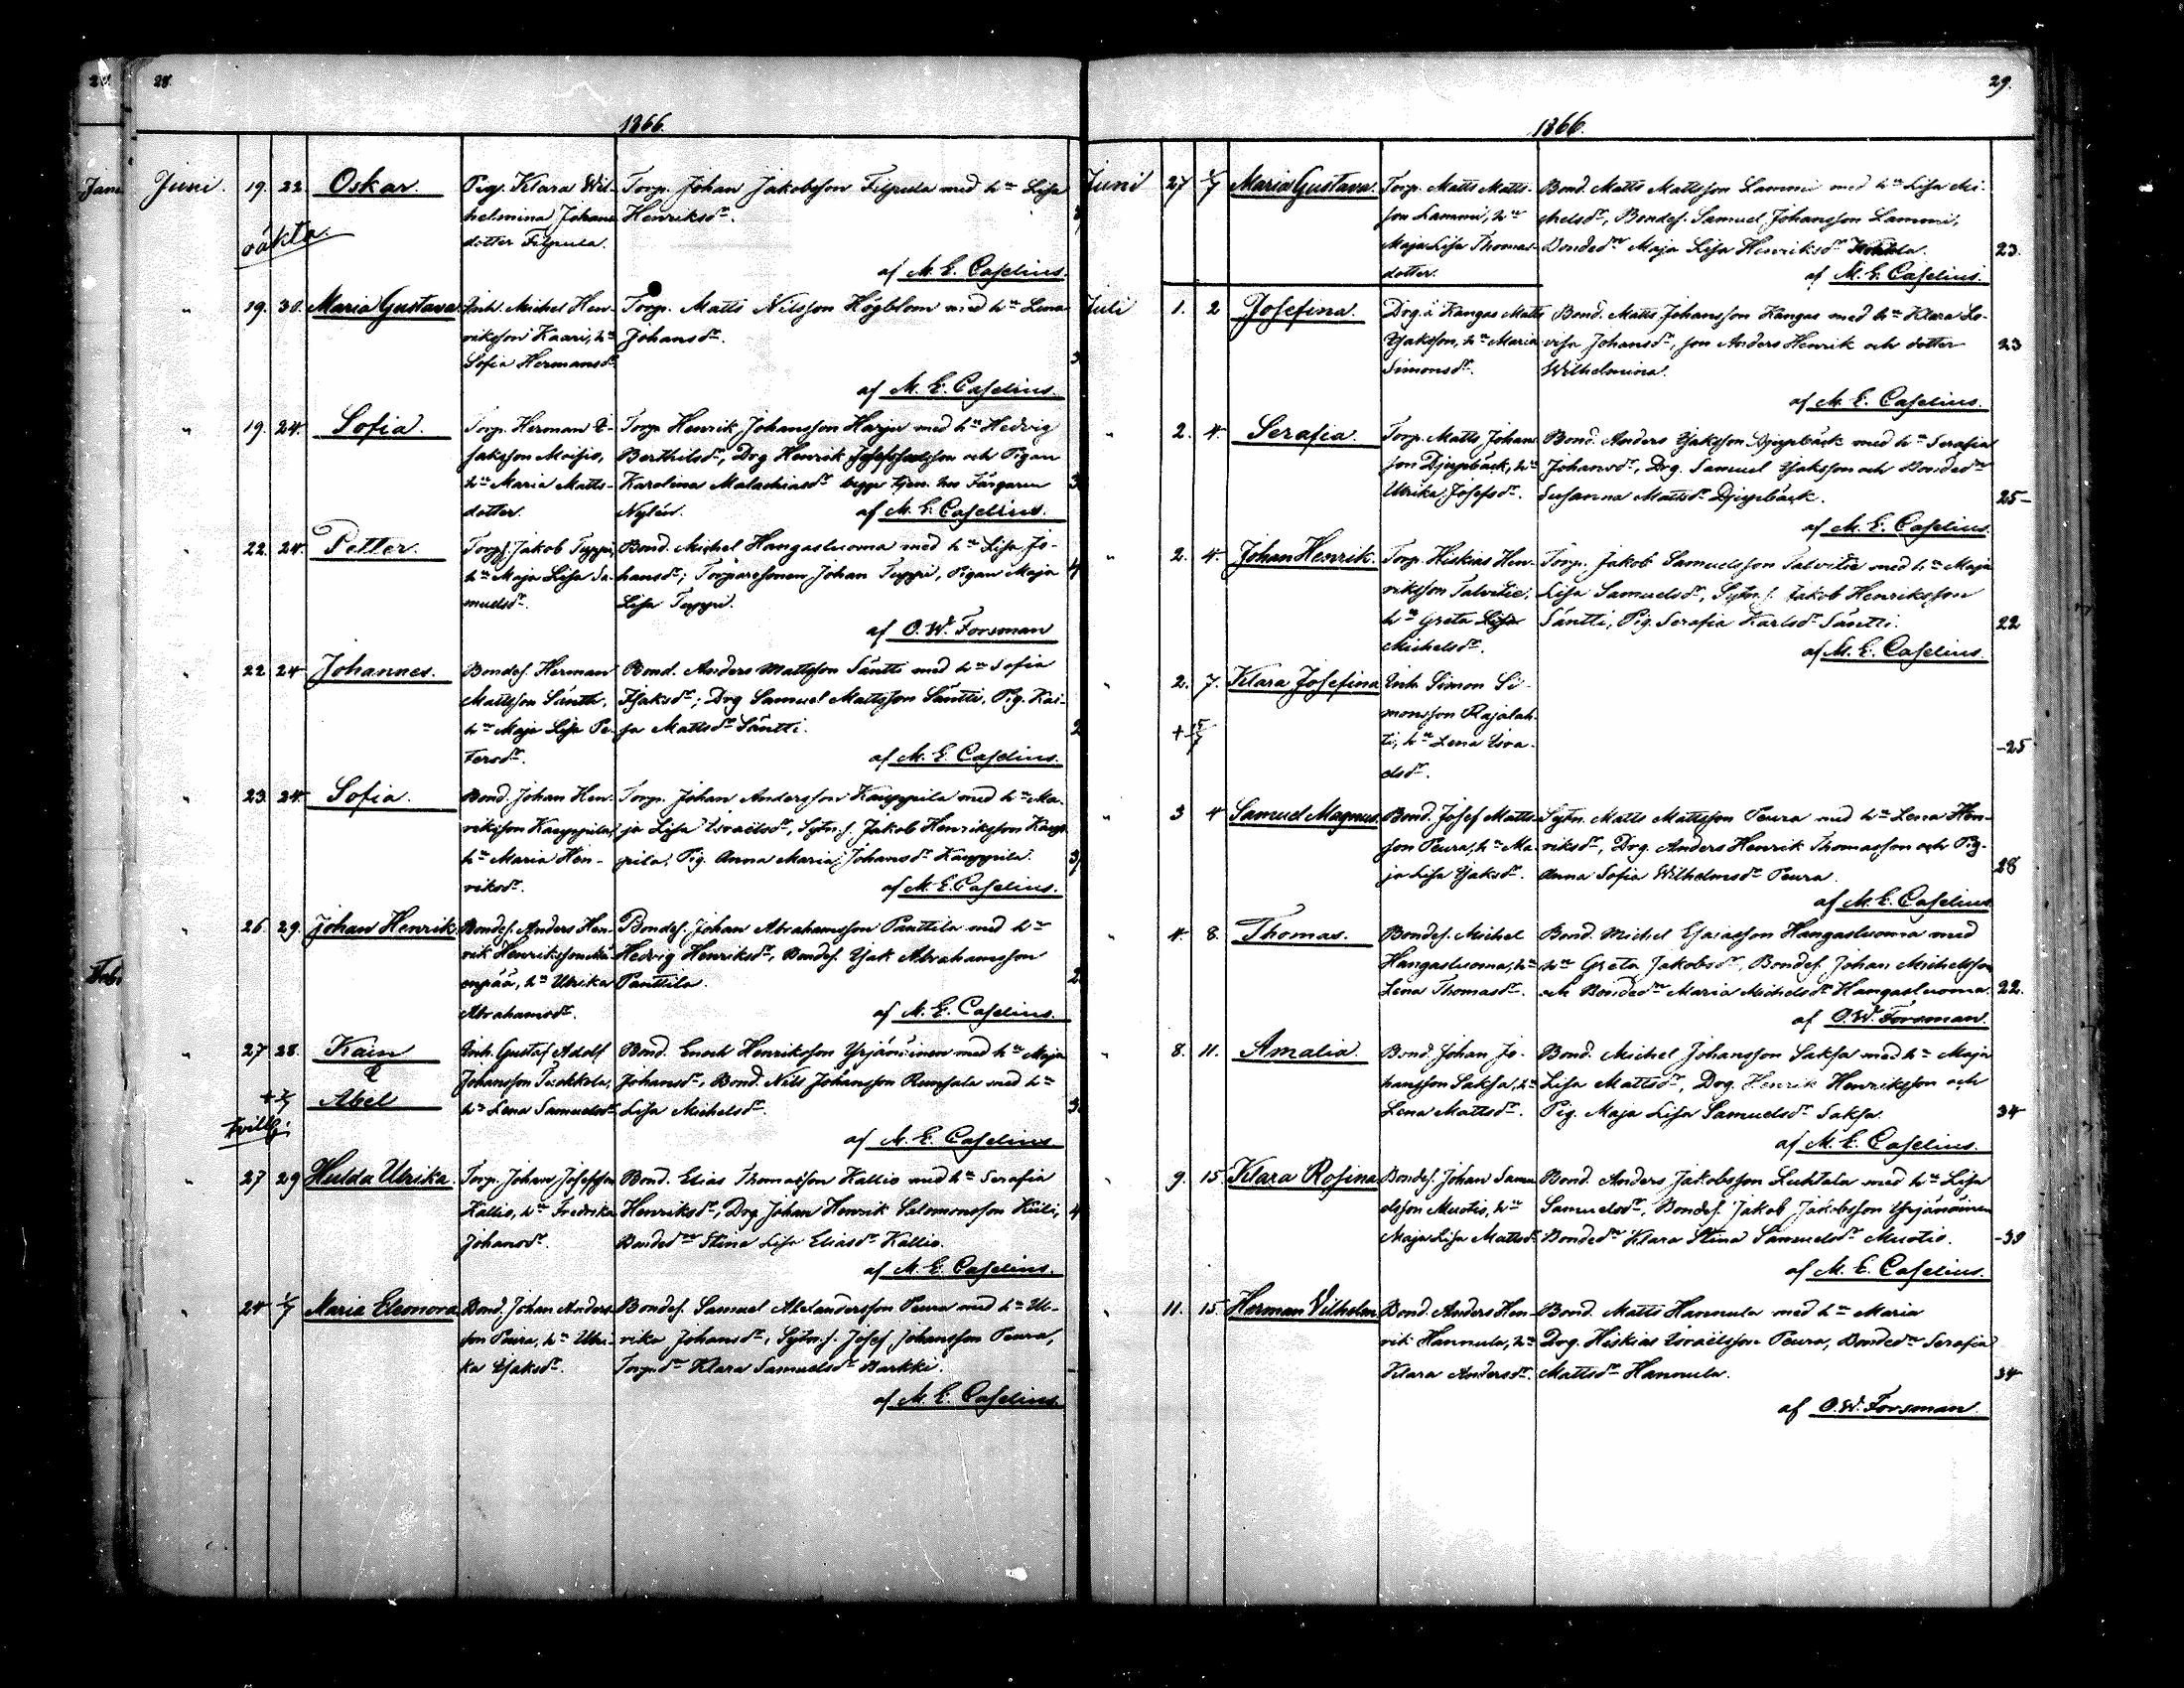 28.
1866.
Juni. 19. 22. Oskar. Pig. Klara Wil- Torp. Johan Jakobsson Filpula med h:u Lisa
oäkta. helmina Johans Henriksd:r.
dotter Filpula.
af M. E. Caselius.
" 19. 30. Maria Gustava. Inh. Michel Hen- Torp. Matts Nilsson Högblom med h:u Lena
riksson Kaari, h:u Johansd:r.
Sofia Hermansd:r
af M. E. Caselius.
" 19. 24. Sofia. Torp. Herman I- Torp. Henrik Johansson Harju med h:u Hedvig
saksson Moisio, Berthilsd:r, Drg Henrik och Pigan
h:u Maria Matts- Karolina Malachiasd:r begge tjen. hos Färgaren
dotter. Nylén. af M. E. Caselius.
" 22. 24. Petter. Torp. Jakob Tuppi, Bond. Michel Hangasluoma med h:u Lisa Jo-
h:u Maja Lisa Sa- hansd:r; Torparesonen Johan Tuppi, Pigan Maja
muelsd:r. Lisa Tuppi.
af O. W. Forsman
" 22 24 Johannes. Bondes. Herman Bond. Anders Mattsson Säntti med h:u Sofia
Mattsson Säntti, Isaksd:r; Drg Samuel Mattsson Säntti, Pig. Kai-
h:u Maja Lisa Pe- sa Mattsd:r Säntti.
tersd:r. af M. E. Caselius.
" 23. 24. Sofia. Bond. Johan Hen- Torp. Johan Andersson Kauppila med h:u Ma-
riksson Kauppila, ja Lisa Israëlsd:r, Sytn.s. Jakob Henriksson Kaup-
h:u Maria Hen- pila, Pig. Anna Maria Johansd:r Kauppila.
riksd:r. af M. E. Caselius.
" 26. 29. Johan Henrik. Bondes. Anders Hen- Bondes. Johan Abrahamsson Panttila med h:u
rik Henriksson Hedvig Henriksd:r, Bondes. Isak Abrahamsson
h:u Ulrika Panttila.
Abrahamsd:r. af M. E. Caselius.
" 27 28. Kain Inh. Gustaf Adolf Bond. Enoch Henriksson Yrjänäinen med h:u Maja
& Johansson Johansd:r, Bond. Nils Johansson Rumsala med h:u
Abel h:u Lena Samuelsd:r Lisa Michelsd:r.
tvill:
af M. E. Caselius
" 27 29 Hulda Ulrika. Torp. Johan Josefsson Bond. Elias Thomasson Kallio med h:u Serafia
Kallio, h:u Fredrika Henriksd:r, Drg Johan Henrik Salomonsson Küli,
Johansd:r. Bonded:r Stina Lisa Eliasd:r Kallio.
af M. E. Caselius.
" 24 1/7 Maria Eleonora Bond. Johan Anders- Bondes. Samuel Alexandersson Peura med h:u Ul-
son Peura, h:u Ulri- rika Johansd:r, Sytn.s. Josef Johansson Peura,
ka Isaksd:r. Torp.d:r Klara Samuelsd:r Barkki.
af M. E. Caselius.
29.
1866.
Juni 27 1/7 Maria Gustava. Torp. Matts Matts- Bond. Matts Mattsson Lammi med h:u Lisa Mi-
son Lammi, h:u chelsd:r, Bondes. Samuel Johansson Lammi,
Maja Lisa Thomas- Bonded:r Maja Lisa Henriksd:r 23.
dotter. af M. E. Caselius.
Juli 1. 2 Josefina. Drg. å Kangas Matts Bond. Matts Johansson Kangas med h:u Klara Lo-
Isaksson, h:u Maria visa Johansd:r, son Anders Henrik och dotter 23
Simonsd:r. Wilhelmina.
af M. E. Caselius.
" 2. 4. Serafia. Torp. Matts Johans- Bond. Anders Isaksson Djupbäck med h:u Serafia
son Djupbäck, h:u Johansd:r, Drg. Samuel Isaksson och Bonded:r
Ulrika Josefsd:r. Susanna Mattsd:r Djupbäck. 25-
af M. E. Caselius.
" 2. 4. Johan Henrik. Torp. Hiskias Hen- Torp. Jakob Samuelsson Talvitie med h:u Maja
riksson Talvitie, Lisa Samuelsd:r, Sytn.s. Jakob Henriksson
h:u Greta Lisa Säntti, Pig. Serafia Karlsd:r Säntti. 22
Michelsd:r. af M. E. Caselius.
" 2. 7. Klara Josefina Inh. Simon Si-
monsson Rajalah-
ti, h:u Lena Isra- -25
elsd:r.
" 3 4 Samuel Magnus. Bond. Josef Matts- Sytn. Matts Mattsson Peura med h:u Lena Hen-
son Peura, h:u Ma- riksd:r, Drg. Anders Henrik Thomasson och Pig.
ja Lisa Isaksd:r. Anna Sofia Wilhelmsd:r Peura. 28
af M. E. Caselius.
" 4. 8. Thomas. Bondes. Michel Bond. Michel Esaiasson Hangasluoma med
Hangasluoma, h:u h:u Greta Jakobsd:r, Bondes. Johan Michelsson
Lena Thomasd:r. och Bonded:r Maria Michelsd:r Hangasluoma. 22.
af O. W. Forsman.
" 8. 11. Amalia. Bond. Johan Jo- Bond. Michel Johansson Saksa med h:u Maja
hansson Saksa, h:u Lisa Mattsd:r, Drg. Henrik Henriksson och
Lena Mattsd:r. Pig. Maja Lisa Samuelsd:r Saksa. 34
af M. E. Caselius.
" 9. 15. Klara Rosina Bondes. Johan Samu- Bond. Anders Jakobsson Luhtala med h:u Lisa
elsson Muotio, h:u Samuelsd:r, Bondes. Jakob Jakobsson Yrjänäinen
Maja Lisa Mattsd:r Bonded:r Klara Stina Samuelsd:r Muotio. -39
af M. E. Caselius.
" 11. 15. Herman Vilhelm Bond. Anders Hen- Bond. Matts Hannula med h:u Maria
rik Hannula, h:u Drg. Hiskias Israëlsson Peura, Bonded:r Serafia
Klara Andersd:r. Mattsd:r Hannula. 34
af O. W. Forsman.